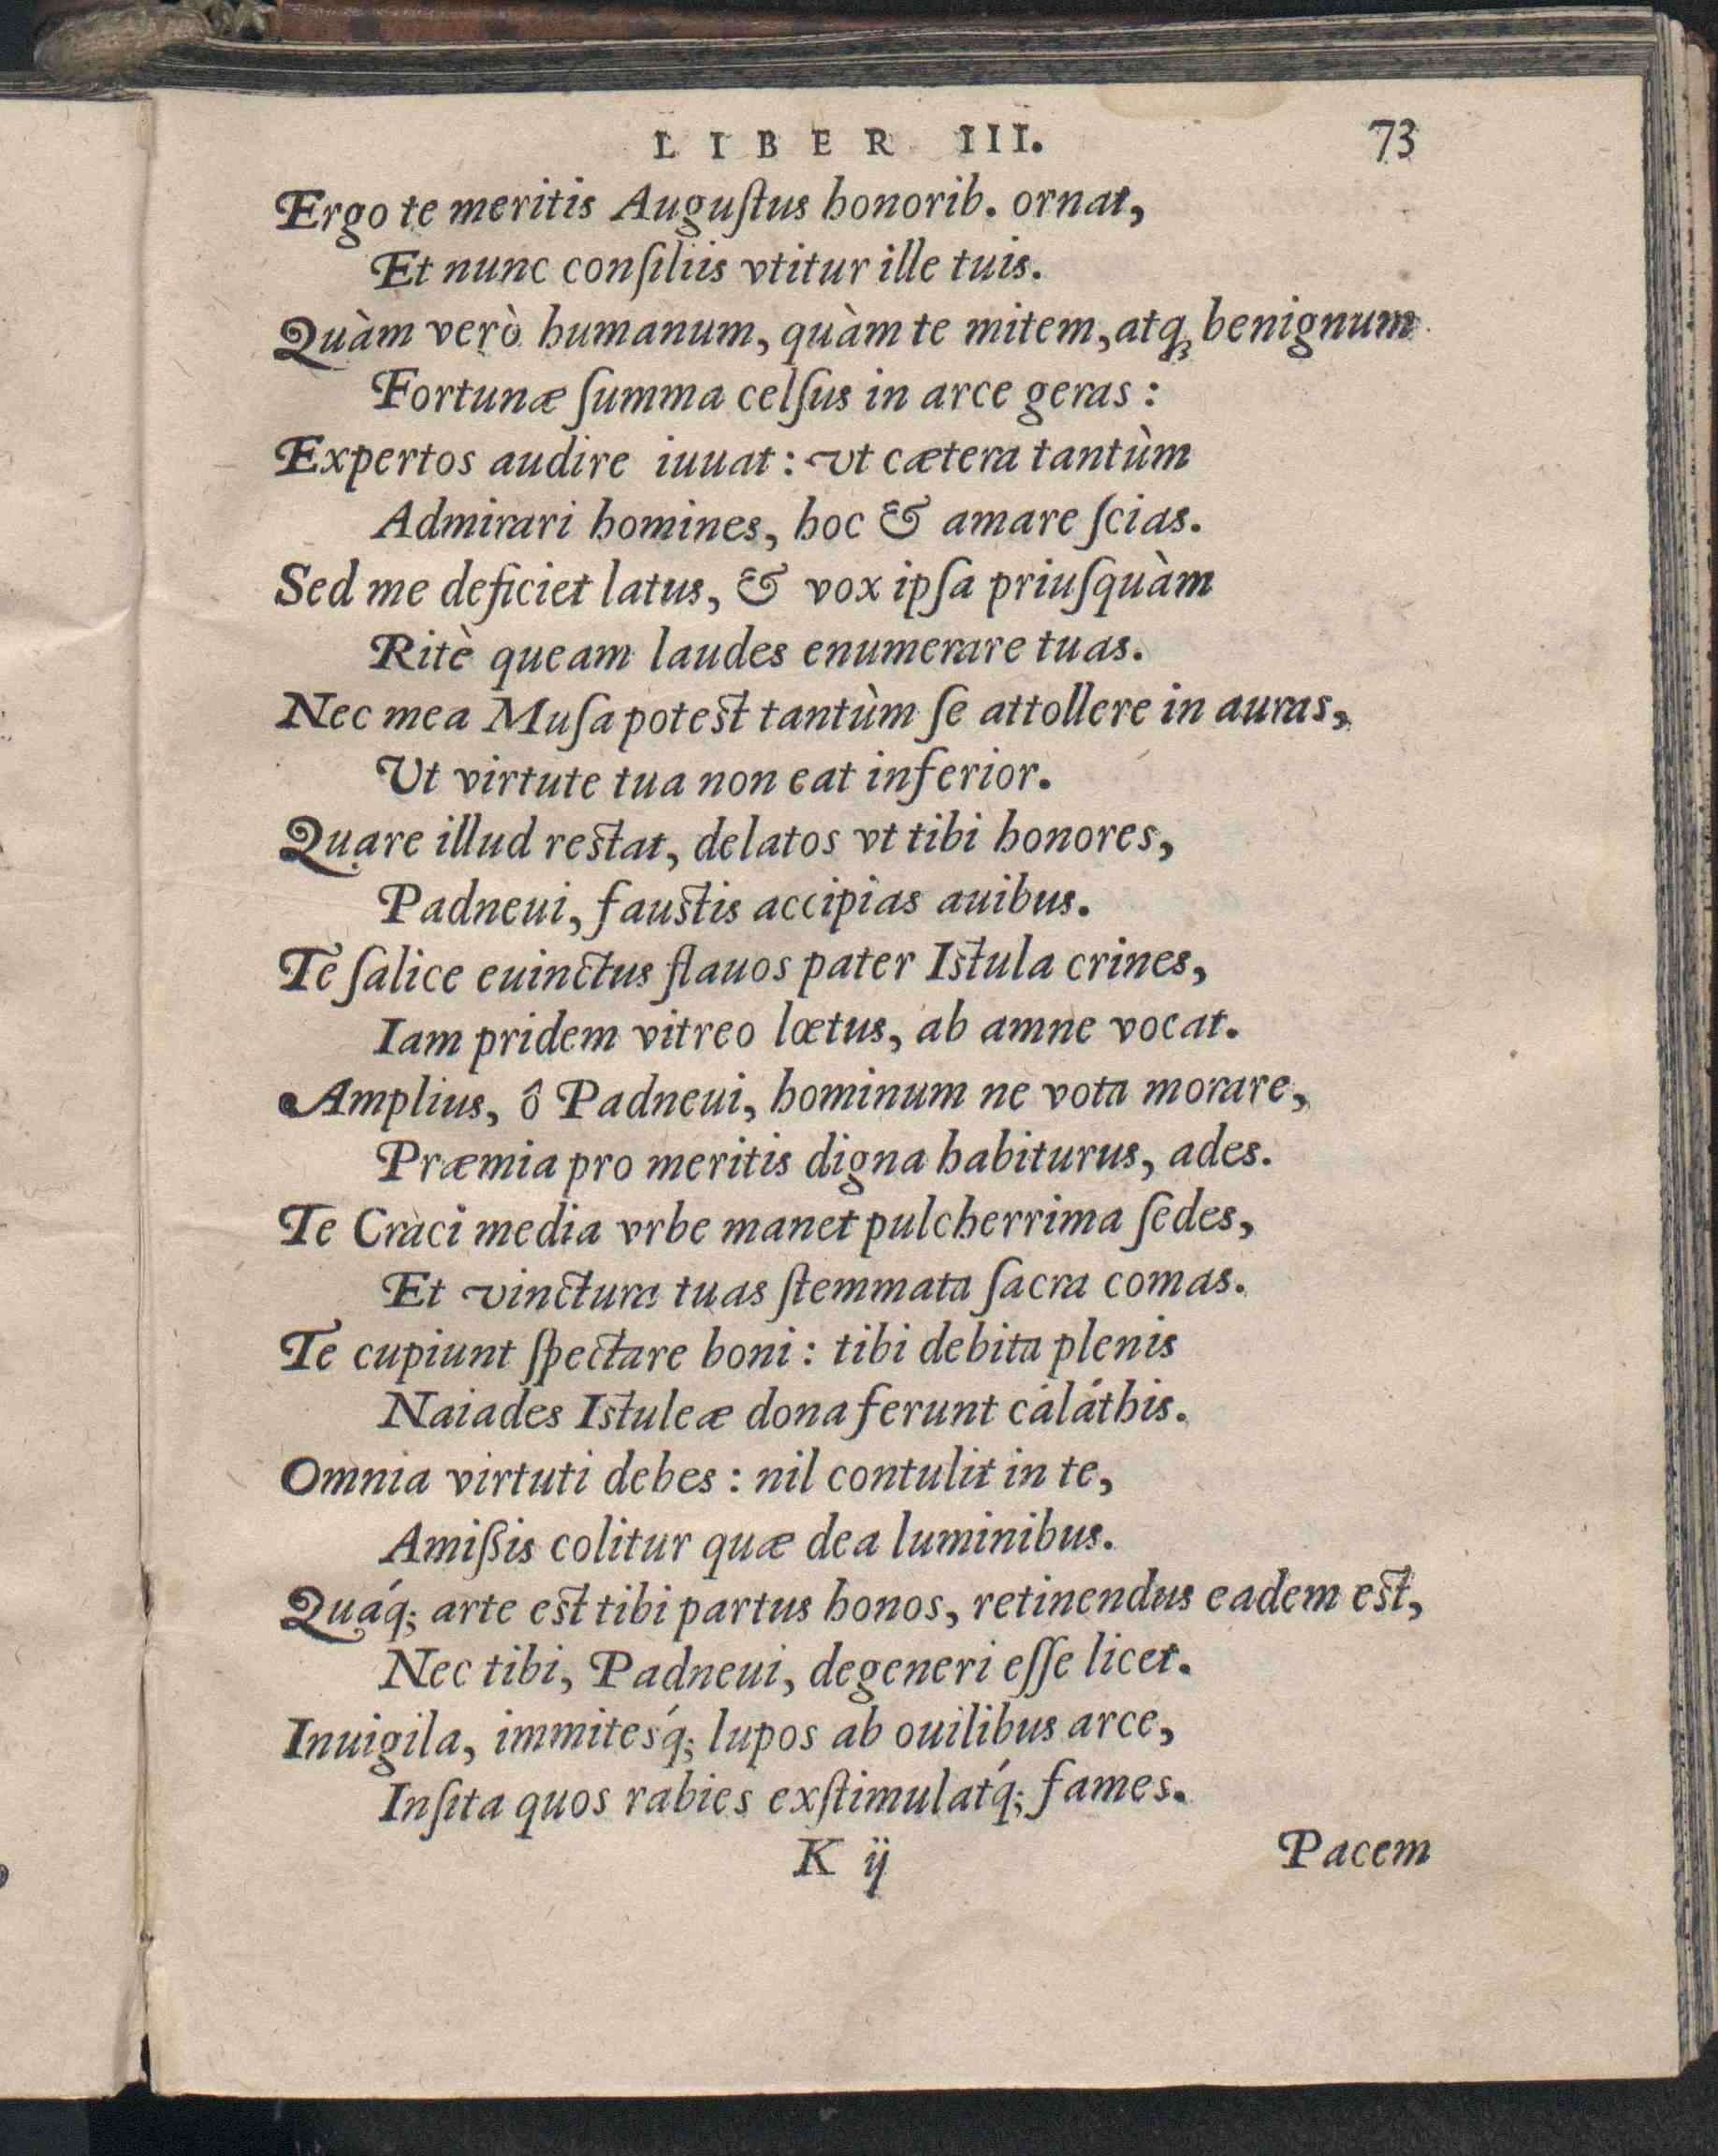 LIBER III. 73
Ergo te meritis Auguſtus honorib. ornat,
Et nunc conſiliis vtitur ille tuis.
Quàm verò humanum, quàm te mitem, atq́ꝫ benignum
Fortunæ ſumma celſus in arce geras:
Expertos audire iuuat: vt cætera tantùm
Admirari homines, hoc & amare ſcias.
Sed me deficiet latus, & vox ipſa priuſquàm
Ritè queam laudes enumerare tuas.
Nec mea Muſa poteſt tantùm ſe attollere in auras,
Ut virtute tua non eat inferior.
Quare illud reſtat, delatos vt tibi honores,
Padneui, fauſtis accipias auibus.
Te ſalice euinctus flauos pater Iſtula crines,
Iam pridem vitreo lœtus, ab amne vocat.
Amplius, ô Padneui, hominum ne vota morare,
Præmia pro meritis digna habiturus, ades.
Te Craci media vrbe manet pulcherrima ſedes,
Et vinctura tuas ſtemmata ſacra comas.
Te cupiunt ſpectare boni: tibi debita plenis
Naiades Iſtuleæ dona ferunt caláthis.
Omnia virtuti debes: nil contulit in te,
Amißis colitur quæ dea luminibus.
Quáq; arte eſt tibi partus honos, retinendus eadem eſt,
Nec tibi, Padneui, degeneri eſſe licet.
Inuigila, immitesq́; lupos ab ouilibus arce,
Inſita quos rabies exſtimulatq́; fames.
K ij Pacem